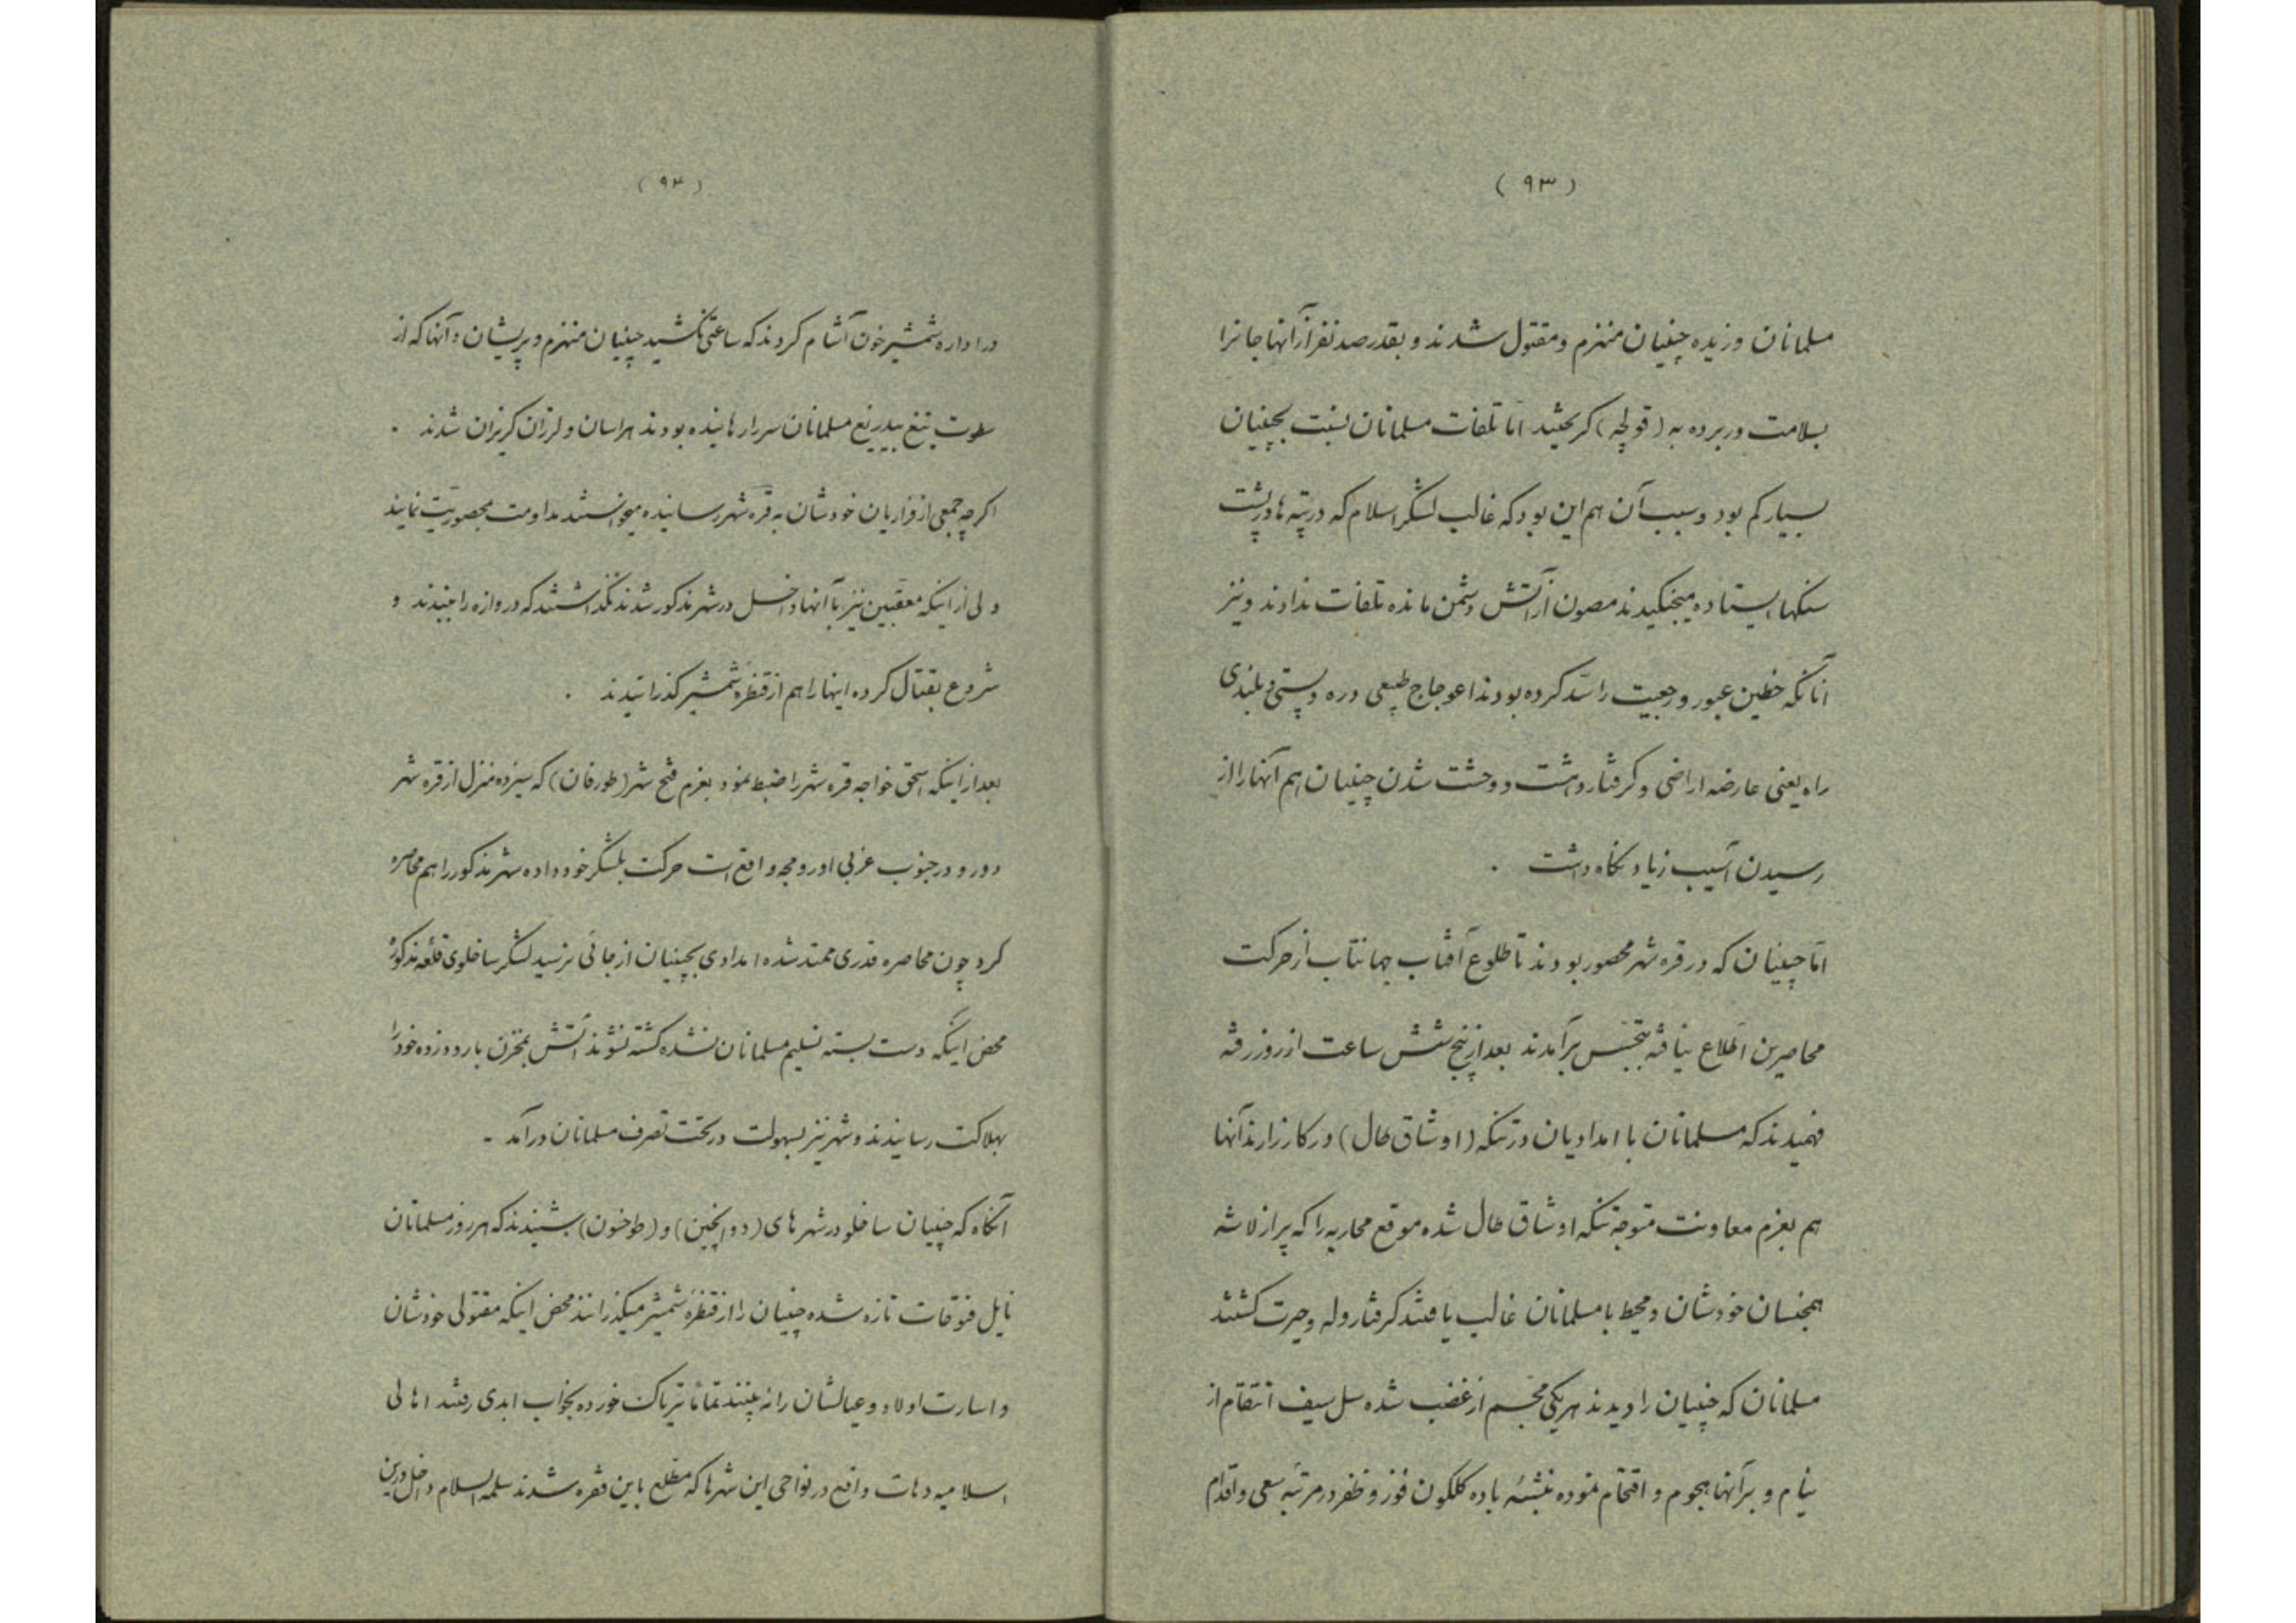 (۹۳)
مسلمانان وزیده چینیان منهزم و مقتول شدند و بقدر صد نفر از آنها جانرا
بسلامت دربرده به (قولچه) کریختند اما تلفات مسلمانان نسبت بچینیان
بسیار کم بود و سبب آن هم این بود که غالب لشکر اسلام که در تپه ها در پشت
سنکها ایستاده میجنکیدند مصون از آتش دشمن مانده تلفات ندادند و نیز
آنانکه خطین عبور و رجعیت را سد کرده بودند اعوجاج طبیعی دره و پستی و بلندی
راه یعنی عارضه اراضی و کرفتار دهشت و وحشت شدن چینیان هم آنها را از
رسیدن آسیب زیاد نکاه داشت .
اما چینیان که در قره شهر محصور بودند تا طلوع آفتاب جهانتاب از حرکت
محاصرین اطلاع نیافته بتجسس برآمدند بعد از پنج شش ساعت از روز رفته
فهمیدند که مسلمانان با امدادیان در تنکه (اوشاق طال) در کارزارند آنها
هم بعزم معاونت متوجه تنکه اوشاق طال شده موقع محاربه را که پر از لاشه
همجنسان خودشان و محیط با مسلمانان غالب یافتند کرفتار وله و حیرت کشتند
مسلمانان که چینیان را دیدند هر یکی مجسم از غضب شده سل سیف انتقام از
نیام و برآنها هجوم و اقتحام نموده بنشئهٔ باده کلکون فوز و ظفر در مرتبهٔ سعی و اقدام
(۹۴)
در اداره شمشیر خون آشام کردند که ساعتی نکشید چینیان منهزم و پریشان و آنها که از
سطوت تیغ بیدریغ مسلمانان سر را رهانیده بودند هراسان و لرزان کریزان شدند .
اکر چه جمعی از فراریان خودشان به قره شهر رسانیده میخواستند مداومت محصوریت نمایند
ولی از اینکه معقبین نیز با آنها داخل در شهر مذکور شدند نکذاشتند که دروازه را ببندند و
شروع بقتال کرده اینها را هم از قنطرهٔ شمشیر کذرانیدند .
بعد از اینکه اسحق خواجه قره شهر را ضبط نمود بعزم فتح شهر (طورفان) که سیزده منزل از قره شهر
دور و در جنوب غربی اورومچه واقع است حرکت بلشکر خود داده شهر مذکور را هم محاصره
کرد چون محاصره قدری ممتد شده امدادی بچینیان از جائی نرسید لشکر ساخلوی قلعه مذکوره
محض اینکه دست بسته تسلیم مسلمانان نشده کشته نشوند آتش بمخزن بارود زده خود را
بهلاکت رسانیدند و شهر نیز بسهولت در تحت تصرف مسلمانان درآمد -
آنکاه که چینیان ساخلو در شهر های (دوانچین) و (طوخسون) شنیدند که هر روز مسلمانان
نایل فتوحات تازه شده چینیان را از قنطرهٔ شمشیر میکذرانند محض اینکه مقتولی خودشان
و اسارت اولاد و عیالشان را نه بینند تماماً تریاک خورده بخواب ابدی رفتند اهالی
اسلامیه دهات واقع در نواحی این شهرها که مطلع باین فقره شدند سلمه السلام داخل درین